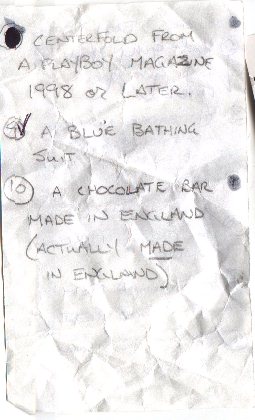 CENTERFOLD FROM
A PLAYBOY MAGAZINE
1998 or LATER.
9 A BLUE BATHING
SUIT
10 A CHOCOLATE BAR
MADE IN ENGLAND
(ACTUALLY MADE
IN ENGLAND)